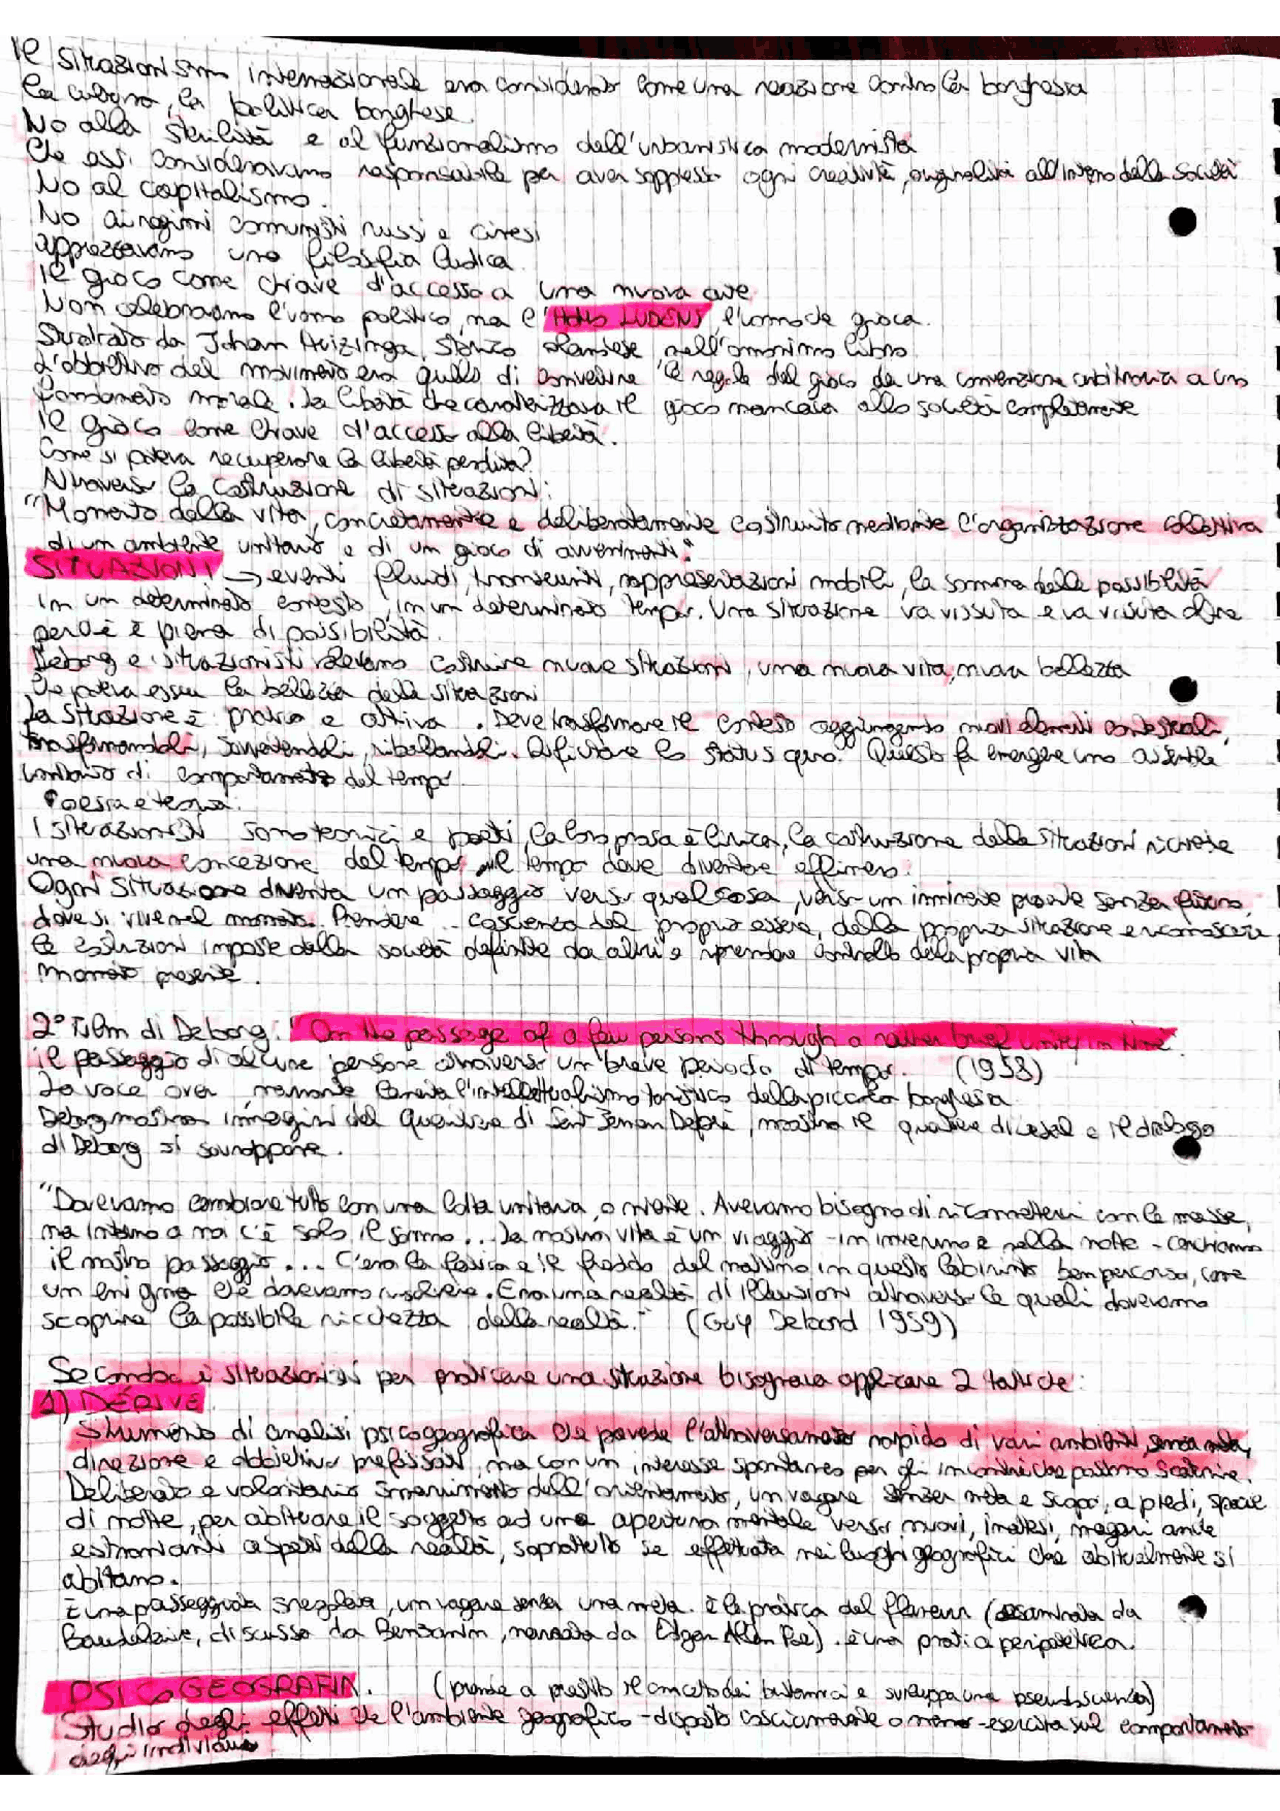 Il situazionismo internazionale era considerato come una reazione contro la borghesia
la cultura, la politica borghese.
No alla sterilità e al funzionalismo dell'urbanistica modernista
che essi consideravano responsabile per aver soppresso ogni creatività, originalità all'interno della società
No al capitalismo.
No ai regimi comunisti russi e cinesi
apprezzavano una filosofia ludica
Il gioco come chiave d'accesso a una nuova
Non celebravano l'uomo politico, ma l'HOMO LUDENS, l'uomo che gioca.
Studiato da Johan Huizinga, storico olandese nell'omonimo libro
L'obbiettivo del movimento era quello di convertire le regole del gioco da una convenzione arbitraria a un
fondamento morale. La libertà che caratterizzava il gioco mancava alla società completamente
Il gioco come chiave d'accesso alla libertà.
Come si poteva recuperare la libertà perduta?
Attraverso la costruzione di situazioni:
"Momento della vita, concretamente e deliberatamente costruito mediante l'organizzazione collettiva
di un ambiente unitario e di un gioco di avvenimenti."
SITUAZIONI → eventi fluidi, transeunti, rappresentazioni mobili, la somma delle possibilità
in un determinato contesto, in un determinato tempo. Una situazione va vissuta e va vissuta oltre
perchè è piena di possibilità.
Deborg e i situazionisti volevano costruire nuove situazioni, una nuova vita, nuova bellezza
che poteva essere la bellezza delle situazioni
La situazione è pratica e attiva. Deve trasformare il contesto aggiungendo nuovi elementi contestuali,
trasformandoli, sovvertendoli, ribaltandoli. Rifiutare lo status quo. Questo fa emergere un assemble
unitario di comportamento del tempo
Poesia e teoria:
I situazionisti sono teorici e poeti, la loro prosa è lirica, la costruzione delle situazioni richiede
una nuova concezione del tempo, il tempo deve diventare effimero.
Ogni situazione diventa un passaggio verso qualcosa, verso un imminente presente senza futuro,
dove si vive nel momento. Prendere coscienza del proprio essere, della propria situazione e riconoscere
le costrizioni imposte dalla società definite da altri e riprendere controllo della propria vita
momento presente.
2° Film di Deborg: "On the passage of a few persons through a rather brief unity in time"
il passaggio di alcune persone attraverso un breve periodo di tempo. (1958)
La voce over, narrante lamenta l'intellettualismo turistico della piccola borghesia
Deborg mostra immagini del quartiere di Saint Jeman Deprè, mostra il quartiere di e il dialogo
di Deborg si sovrappone.
"Dovevamo cambiare tutto con una lotta unitaria, o niente. Avevamo bisogno di riconnetterci con le masse,
ma intorno a noi c'è solo il sonno... La nostra vita è un viaggio - in inverno e nella notte - cerchiamo
il nostro passaggio... C'era la fatica e il freddo del mattino in questo labirinto ben percorso, come
un enigma che dovevamo risolvere. Era una realtà di illusioni attraverso le quali dovevamo
scoprire la possibile ricchezza della realtà." (Guy Debord 1959)
Secondo i situazionisti per praticare una situazione bisognava applicare 2 tattiche:
1) DÉRIVE
Strumento di analisi psicogeografica che prevede l'attraversamento rapido di vari ambienti, senza meta,
direzione e obbiettivo prefissati, ma con un interesse spontaneo per gli incontri che possono scaturire.
Deliberato e volontario smarrimento dell'orientamento, un vagare senza meta e scopo, a piedi, specie
di notte, per abituare il soggetto ad una apertura mentale verso nuovi, inattesi, magari anche
estranianti aspetti della realtà, soprattutto se effettuata nei luoghi geografici che abitualmente si
abitano.
È una passeggiata sregolata, un vagare senza una meta. È la pratica del flaneur (esaminata da
Baudelaire, discussa da Benjamin, narrata da Edgar Allan Poe). è una pratica peripatetica.
PSICOGEOGRAFIA. (prende a prestito il concetto dei britannici e sviluppa una pseudoscienza)
Studio degli effetti che l'ambiente geografico - disposto coscientemente o meno - esercita sul comportamento
degli individui